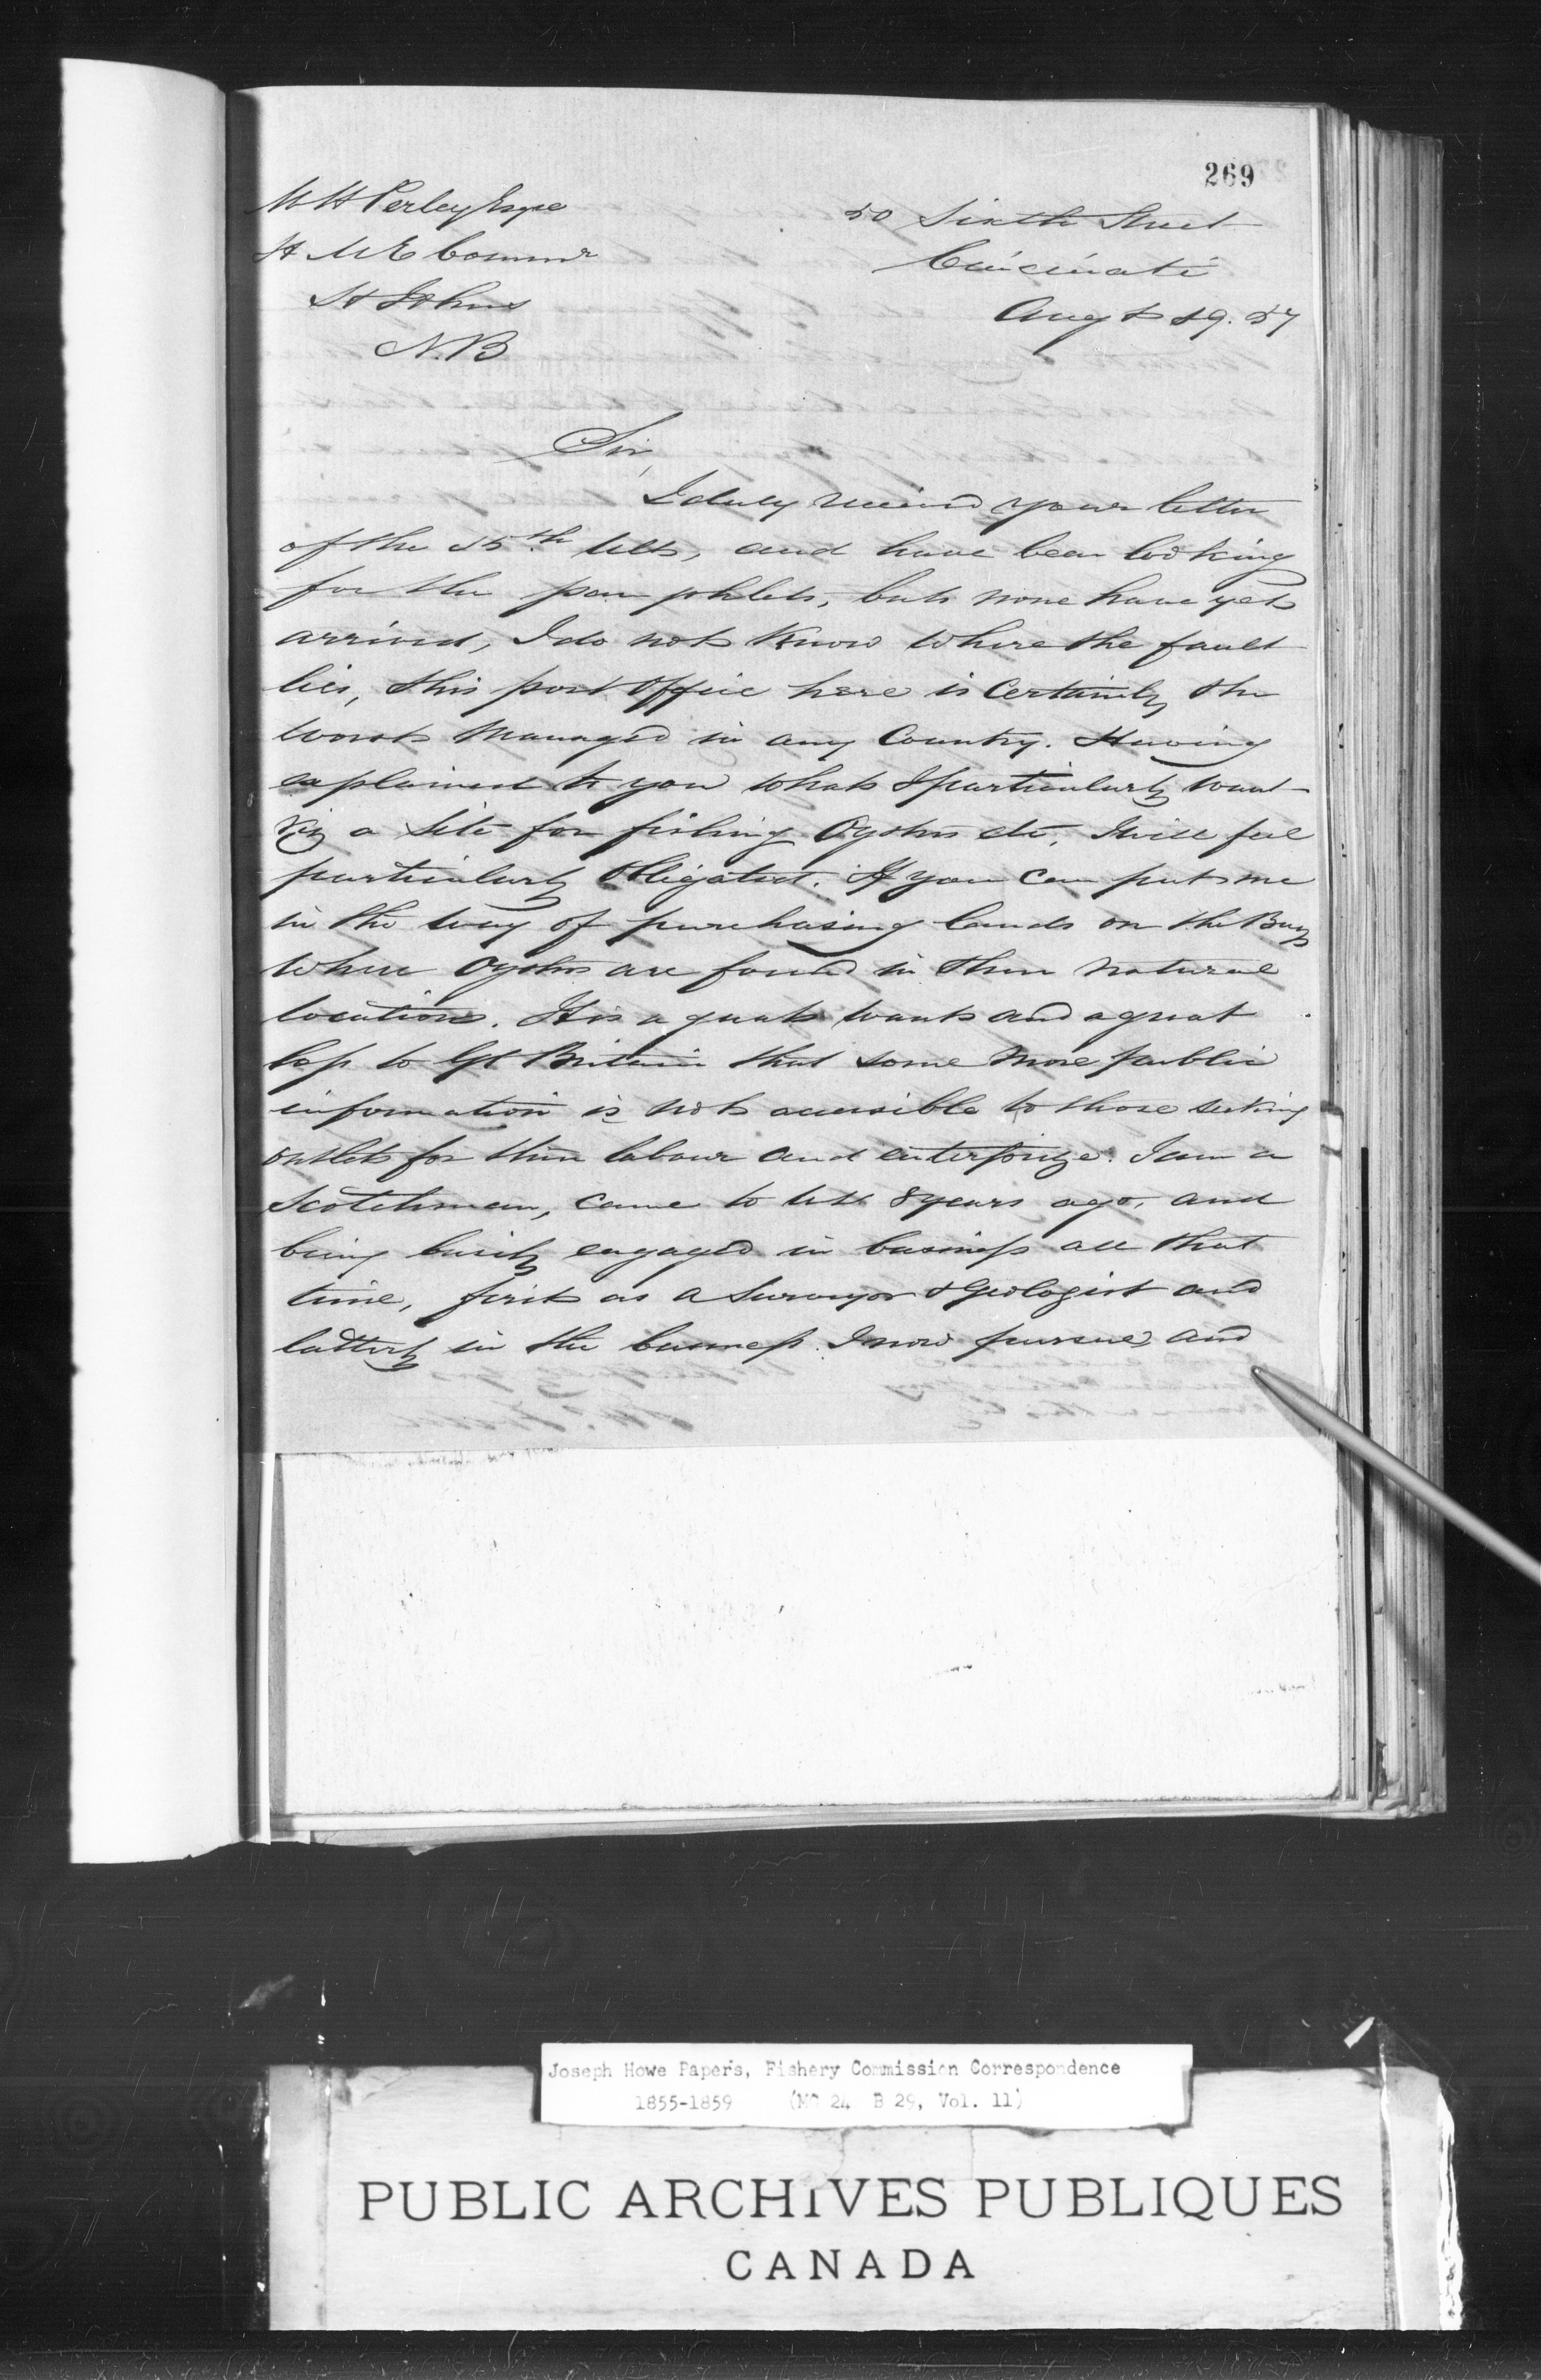 269
M H Perley Esqre
H M E Commr
St Johns
N.B
50 Sixth Street
Cincinati
Augt 19. 57
Sir,
I duly received your letter
of the 15th ult, and have been looking
for the pamphlets, but none have yet
arrived, I do not know where the fault
lies, this post office here is certainly the
worst managed in any Country. Having
explained to you what I particularly want
viz a site for fishing Oysters etc, I will feel
particularly obligated. If you can put me
in the way of purchasing lands on the Bay
where Oysters are found in their natural
locations. It is a great want and a great
loss to Gt Britain that some more public
information is not accessible to those seeking
outlets for their labour and enterprize. I am a
Scotchman, came to US 8 years ago, and
being busily engaged in business all that
time, first as a Surveyor & Geologist and
latterly in the business I now pursue, and
Joseph Howe Papers, Fishery Commission Correspondence
1855-1859 (MG 24 B 29, Vol. 11)
PUBLIC ARCHIVES PUBLIQUES
CANADA